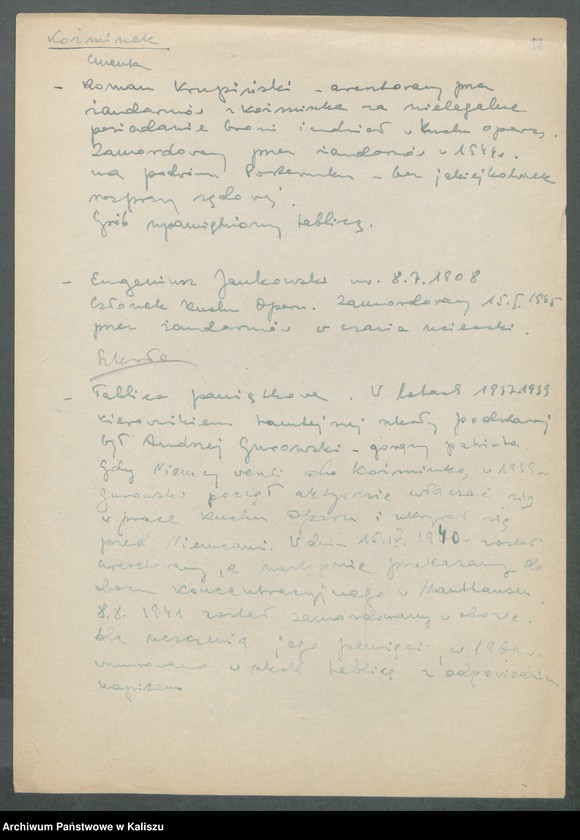 Koźminek 17
Cmentarz
- Roman Krupiński - aresztowany przez
żandarmów z Koźminka za nielegalne
posiadanie broni i udział w Ruchu oporu.
Zamordowany przez żandarmów w 1944 r.
na podwórzu Posterunku - bez jakiejkolwiek
rozprawy sądowej.
Grób upamiętniony tablicą.
- Eugeniusz Jankowski ur. 8.7.1908
Członek Ruchu Oporu. Zamordowany 15.I.1945
przez żandarmów w czasie ucieczki.
Szkoła
- Tablica pamiątkowa. W latach 1937-1939
kierownikiem tamtejszej szkoły podstawowej
był Andrzej Gurowski - gorący patriota.
Gdy Niemcy weszli do Koźminka w 1939 r.
Gurowski począł aktywnie włączać się
w prace Ruchu Oporu i ukrywał się
przed Niemcami. W dniu 15.IV.1940 został
aresztowany, a następnie przekazany do
obozu koncentracyjnego w Mauthausen.
8.8.1941 został zamordowany w obozie.
Dla uczczenia jego pamięci, w 1960 r.
wmurowano w szkole tablicę z odpowiednim
napisem
Archiwum Państwowe w Kaliszu